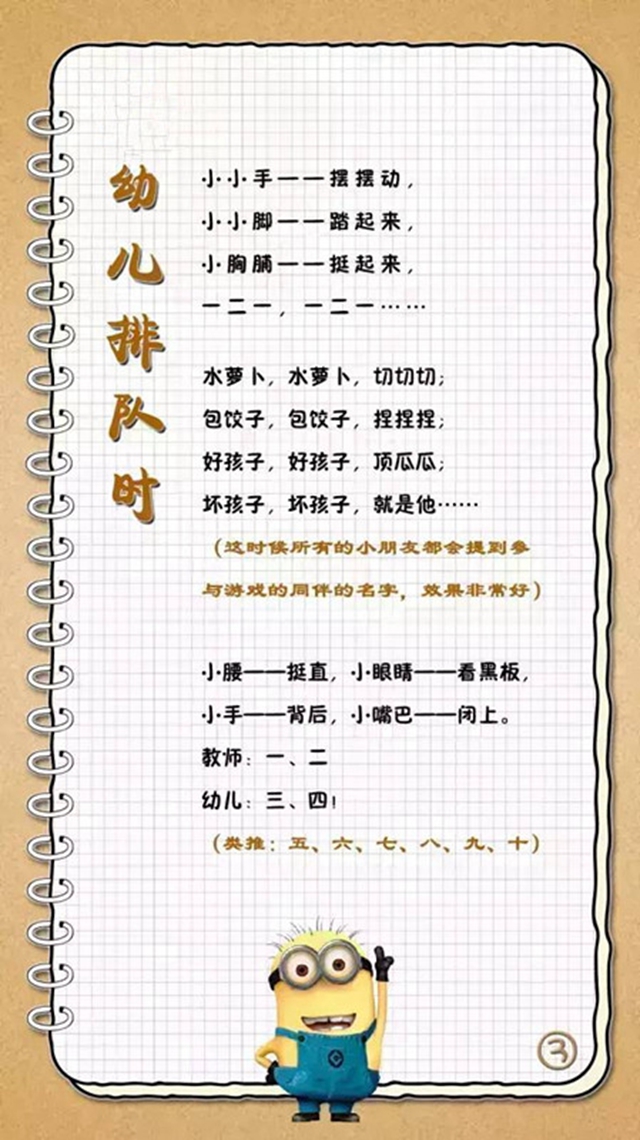 幼儿排队时
小小手——摆摆动，
小小脚——踏起来，
小胸脯——挺起来，
一二一，一二一……
水萝卜，水萝卜，切切切；
包饺子，包饺子，捏捏捏；
好孩子，好孩子，顶瓜瓜；
坏孩子，坏孩子，就是他……
（这时候所有的小朋友都会提到参
与游戏的同伴的名字，效果非常好）
小腰——挺直，小眼睛——看黑板，
小手——背后，小嘴巴——闭上。
教师：一、二
幼儿：三、四！
（类推：五、六、七、八、九、十）
3